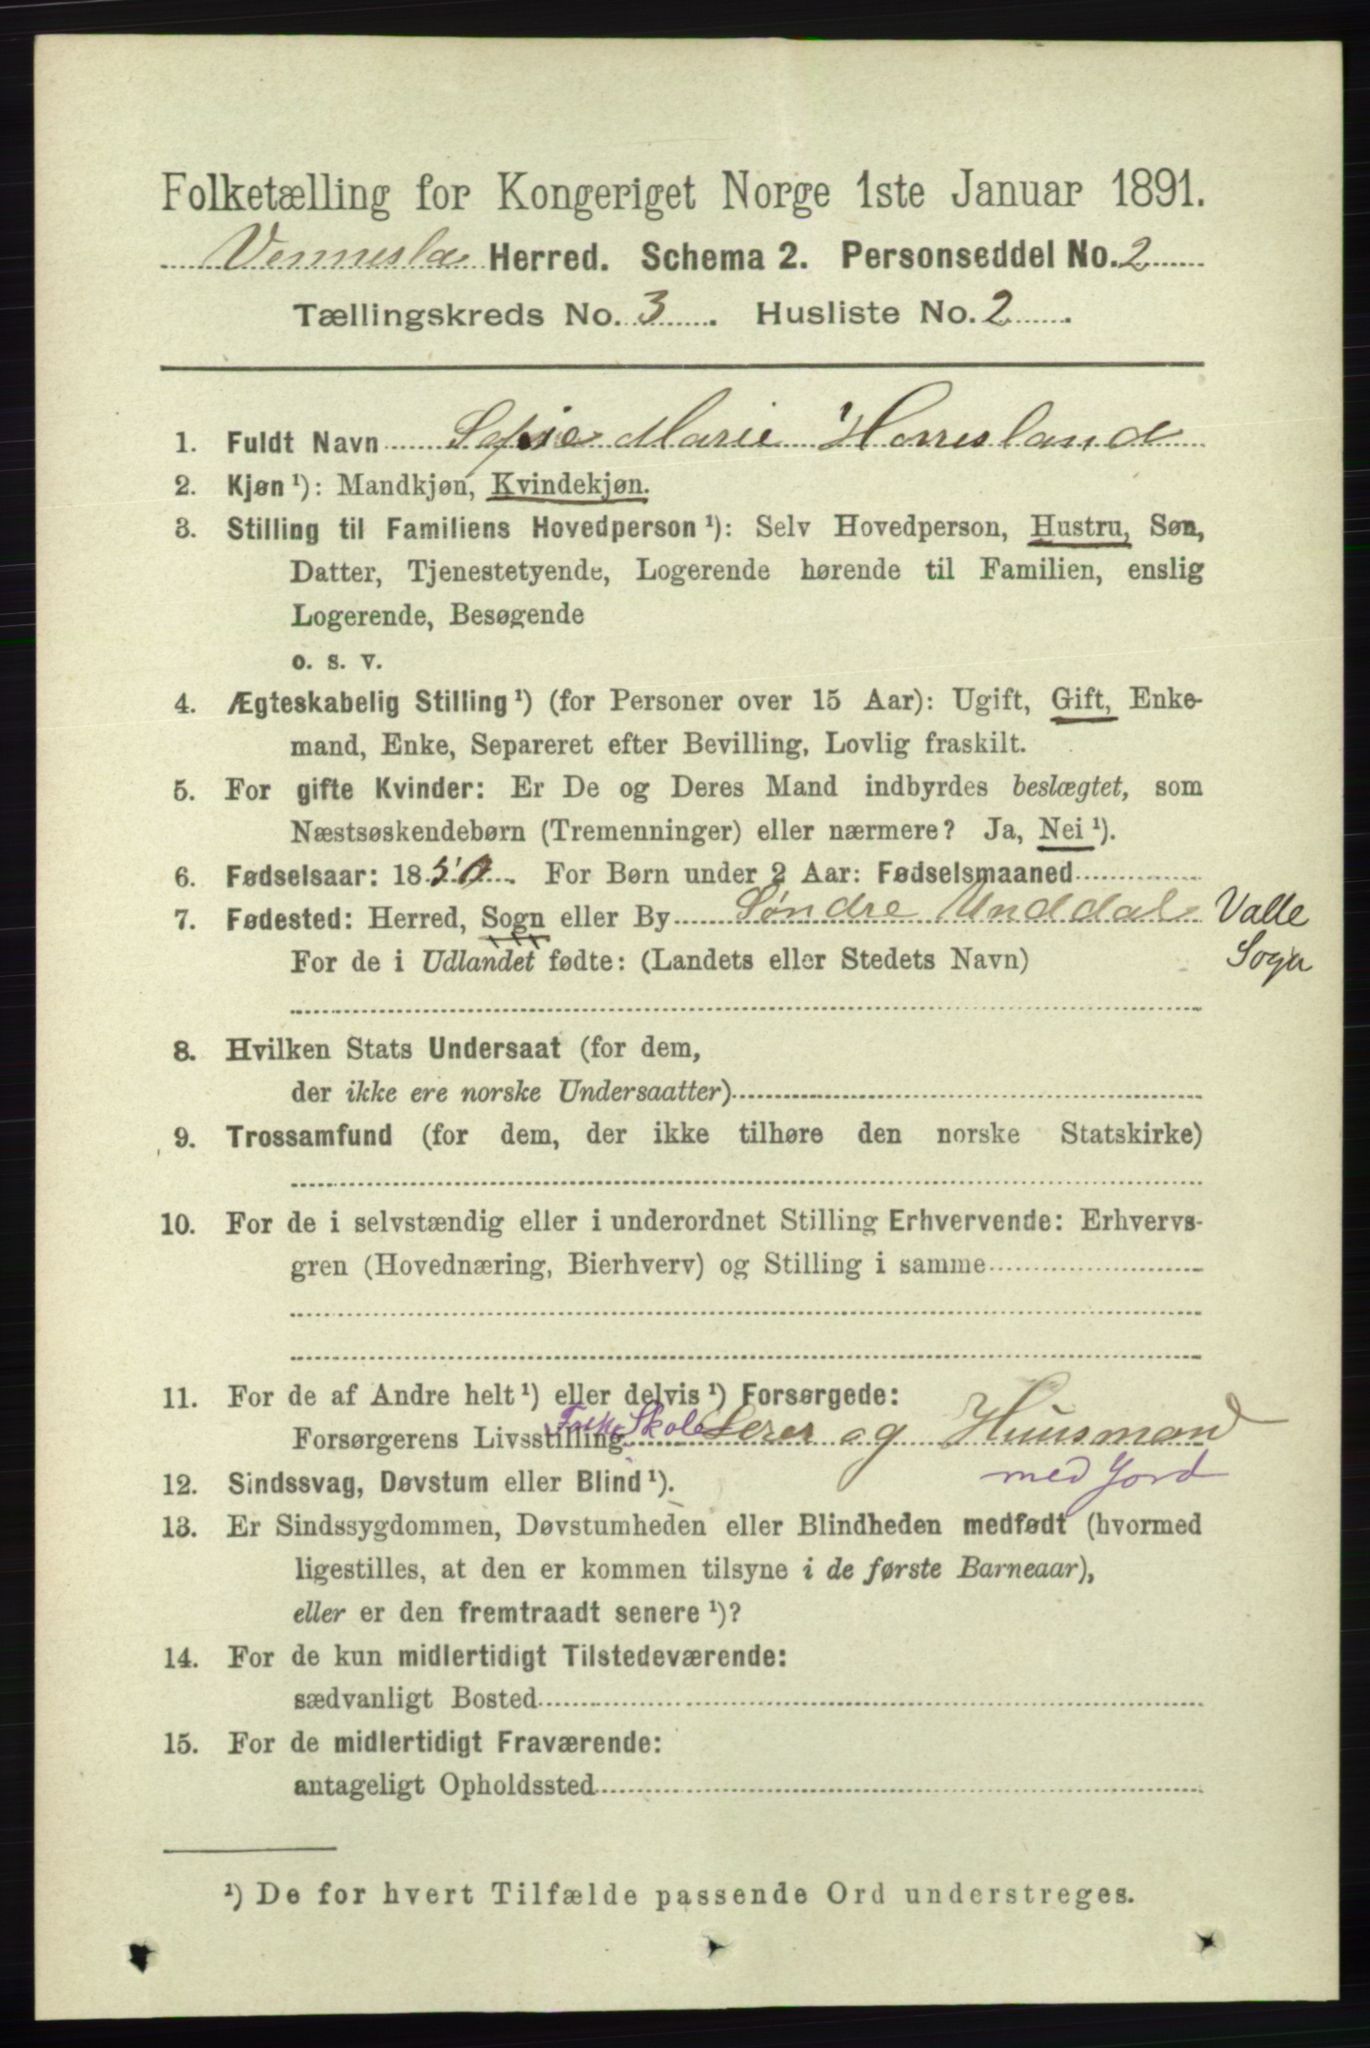 Folketælling for Kongeriget Norge 1ste Januar 1891.
Vennesla Herred. Schema 2. Personseddel No. 2
Tællingskreds No. 3. Husliste No. 2.
1. Fuldt Navn Sofie Marie Horresland
2. Kjøn ¹): Mandkjøn, Kvindekjøn.
3. Stilling til Familiens Hovedperson ¹): Selv Hovedperson, Hustru, Søn,
Datter, Tjenestetyende, Logerende hørende til Familien, enslig
Logerende, Besøgende
o. s. v.
4. Ægteskabelig Stilling ¹) (for Personer over 15 Aar): Ugift, Gift, Enke-
mand, Enke, Separeret efter Bevilling, Lovlig fraskilt.
5. For gifte Kvinder: Er De og Deres Mand indbyrdes beslægtet, som
Næstsøskendebørn (Tremenninger) eller nærmere? Ja, Nei ¹).
6. Fødselsaar: 1850. For Børn under 2 Aar: Fødselsmaaned
7. Fødested: Herred, Sogn eller By Søndre Unddal Valle
Sogn
For de i Udlandet fødte: (Landets eller Stedets Navn)
8. Hvilken Stats Undersaat (for dem,
der ikke ere norske Undersaatter)
9. Trossamfund (for dem, der ikke tilhøre den norske Statskirke)
10. For de i selvstændig eller i underordnet Stilling Erhvervende: Erhvervs-
gren (Hovednæring, Bierhverv) og Stilling i samme
11. For de af Andre helt ¹) eller delvis ¹) Forsørgede:
Forsørgerens Livsstilling Folke Skole Lerer og Huusmand
med Jord
12. Sindssvag, Døvstum eller Blind ¹).
13. Er Sindssygdommen, Døvstumheden eller Blindheden medfødt (hvormed
ligestilles, at den er kommen tilsyne i de første Barneaar),
eller er den fremtraadt senere ¹)?
14. For de kun midlertidigt Tilstedeværende:
sædvanligt Bosted
15. For de midlertidigt Fraværende:
antageligt Opholdssted
¹) De for hvert Tilfælde passende Ord understreges.